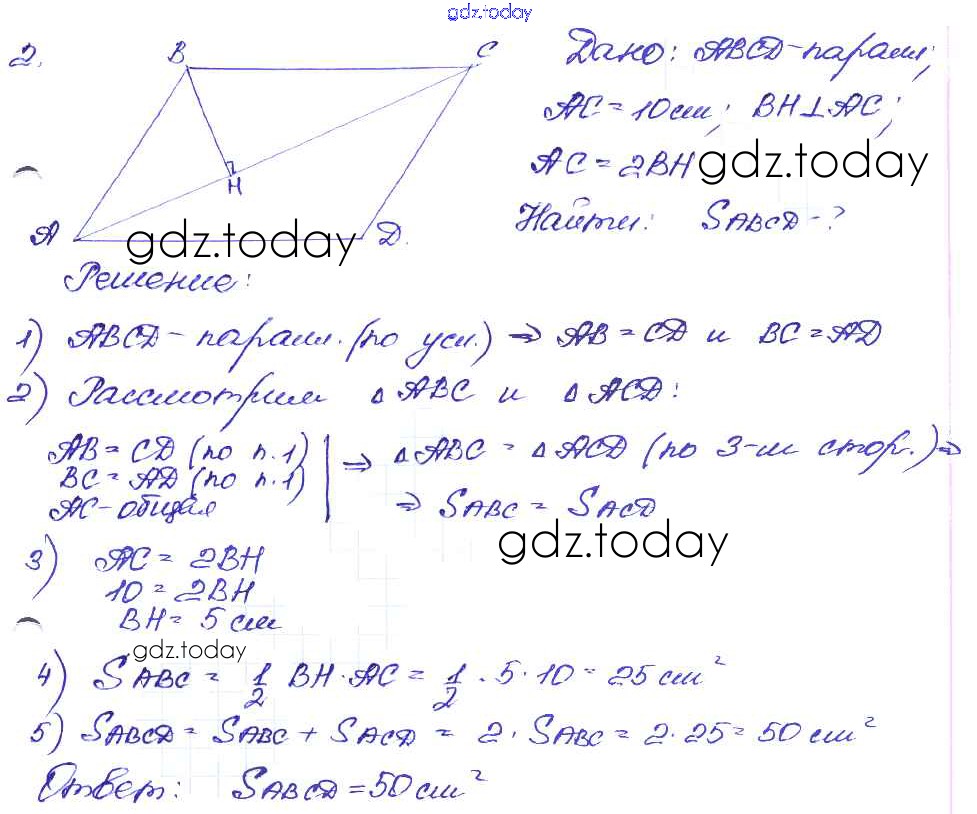 gdz.today
2.
B
C
H
A
D.
Дано: ABCD-парал;
AC = 10 см; BH⊥AC;
AC = 2BH
gdz.today
Найти: SABCD - ?
gdz.today
Решение:
1) ABCD - парал. (по усл.) ⇒ AB = CD и BC = AD
2) Рассмотрим △ABC и △ACD:
AB = CD (по п.1)
BC = AD (по п.1)
AC - общая
⇒ △ABC = △ACD (по 3-м стор.) ⇒
⇒ SABC = SACD
gdz.today
3) AC = 2BH
10 = 2BH
BH = 5 см
gdz.today
4) SABC = 1/2 BH · AC = 1/2 · 5 · 10 = 25 см²
5) SABCD = SABC + SACD = 2 · SABC = 2 · 25 = 50 см²
Ответ: SABCD = 50 см²